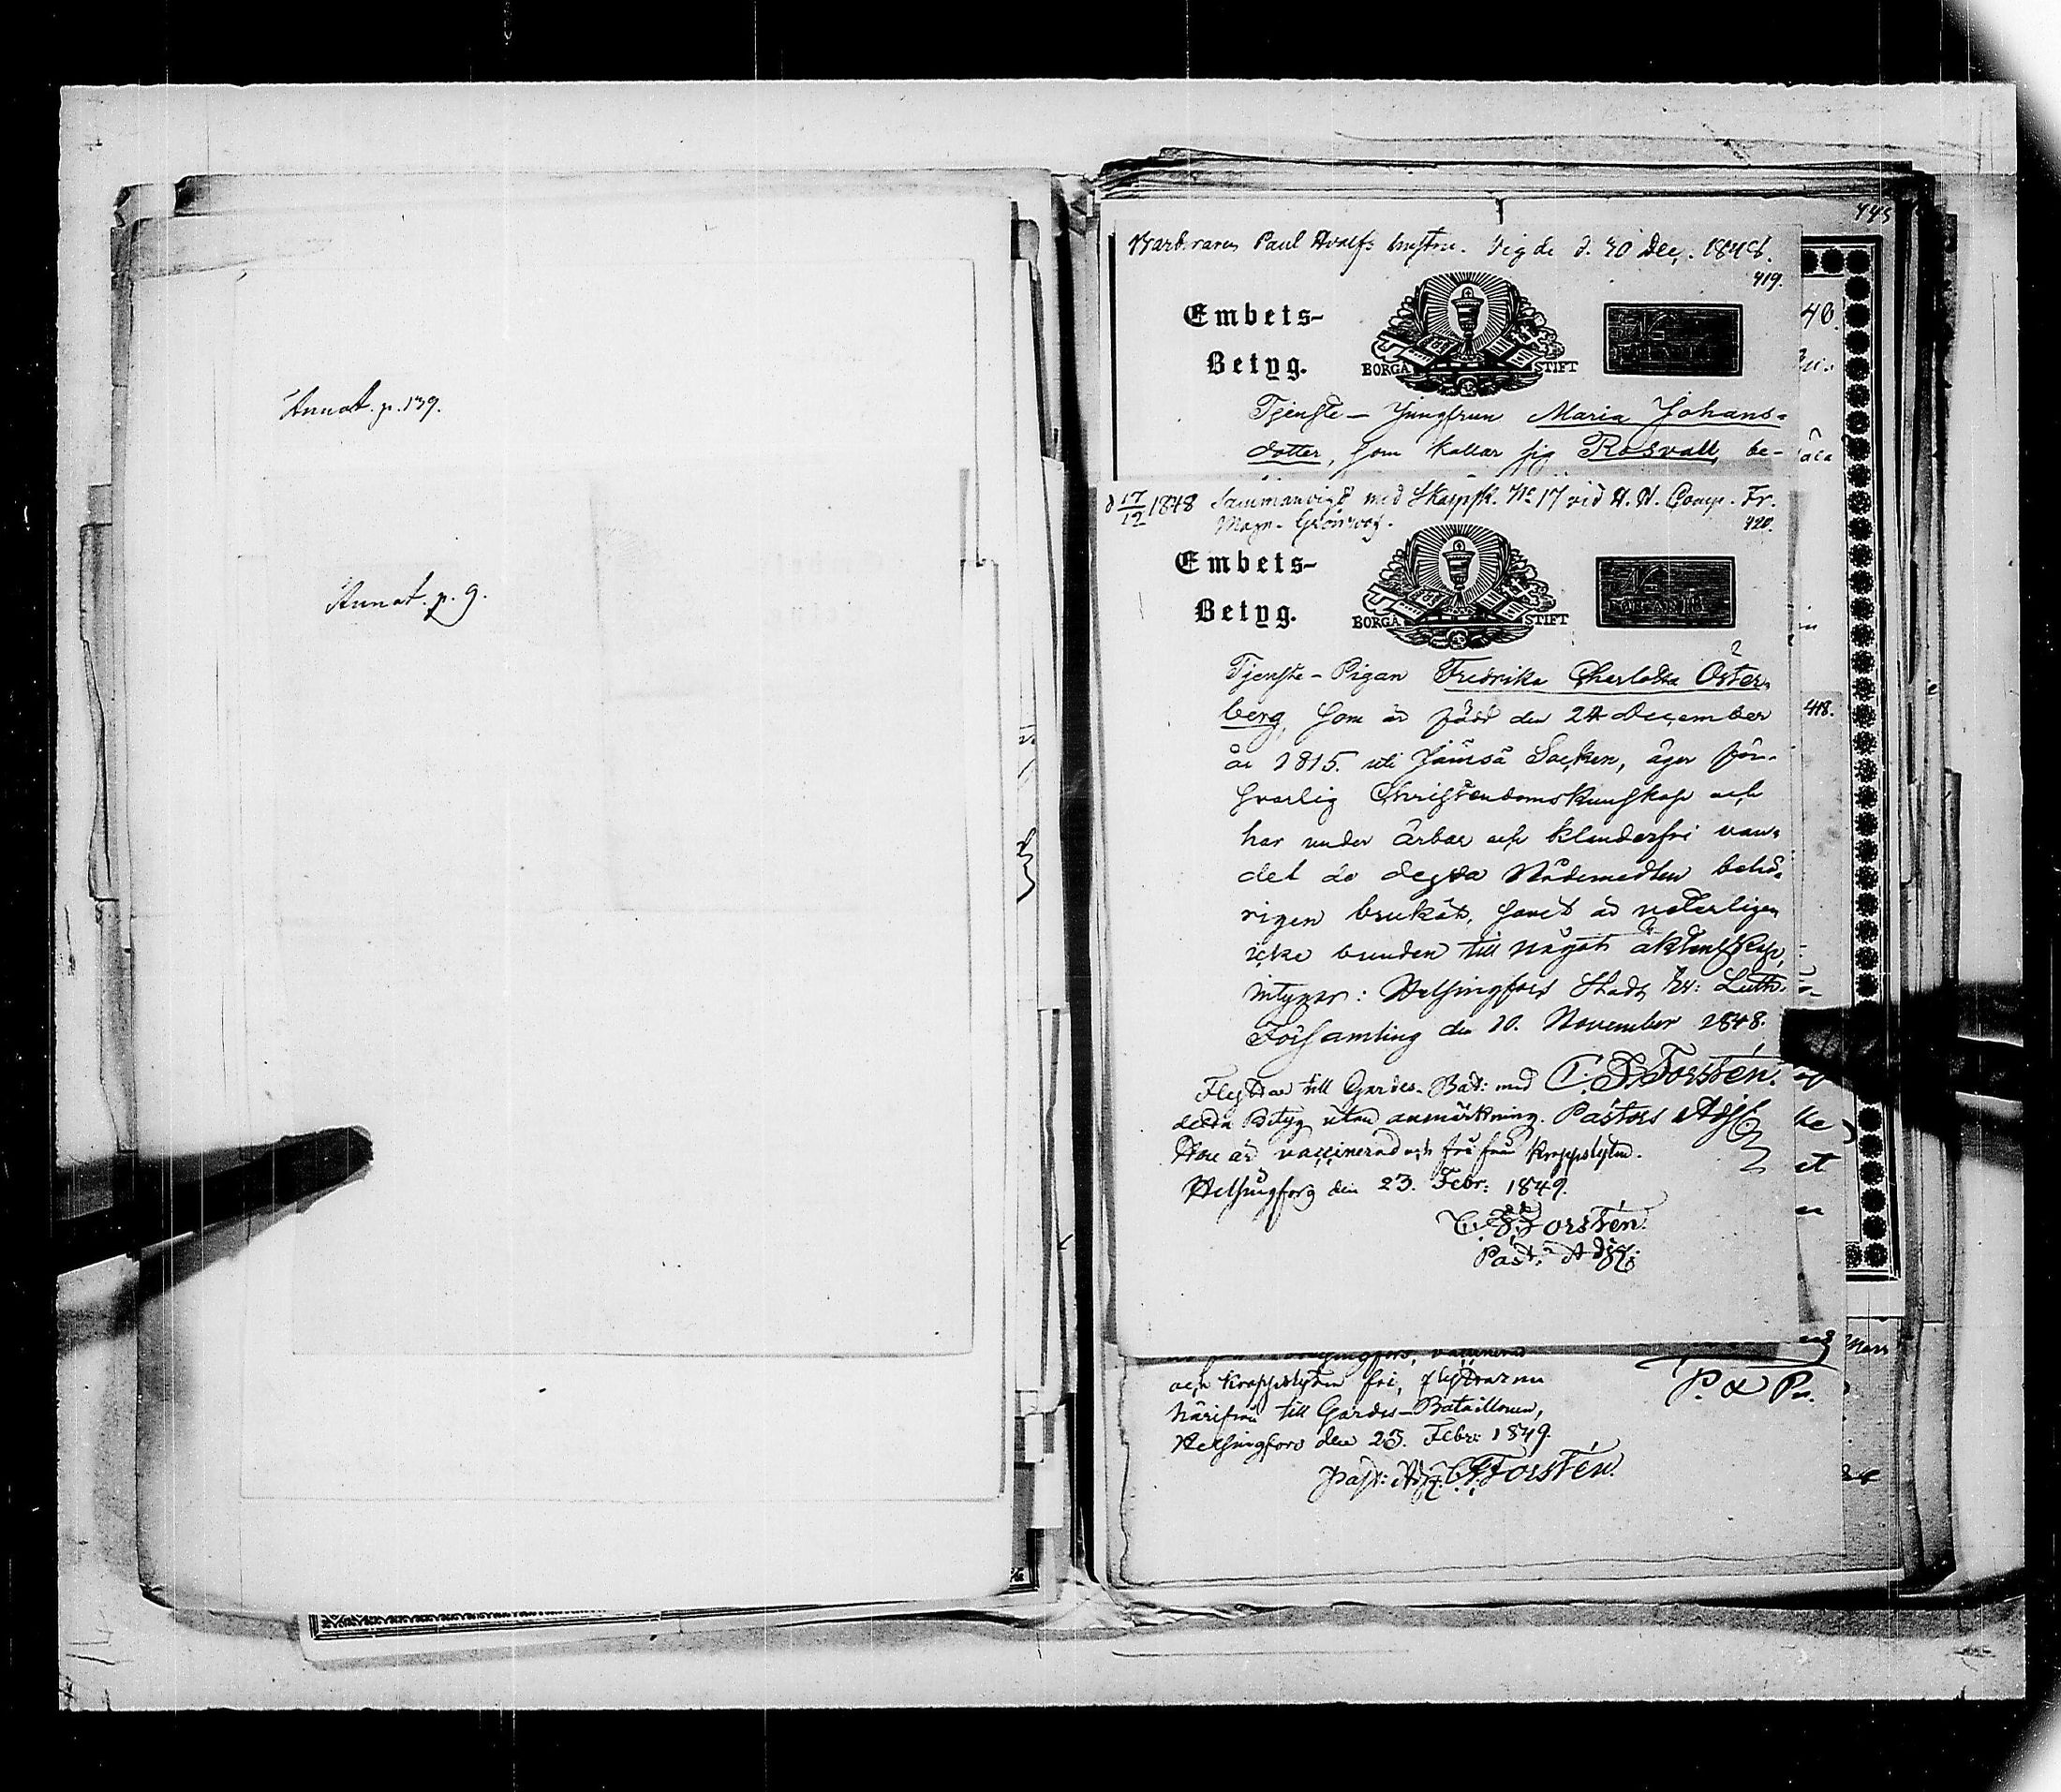 Annot. p. 139.
Annot. p. 9.
445
Barberaren Paul Avolfs hustru. Vigde d. 30 Dec. 1848.
419.
Embets-
Betyg.
BORGÅ STIFT
Tjenste-Jungfrun Maria Johans-
dotter, som kallar sig Rosvall, be-
d 17/12 1848 Sammanvigd med Skarpsk. No 17 vid
Comp. Fr.
Magn.
420.
Embets-
Betyg.
BORGÅ STIFT
Tjenste-Pigan Fredrika Charlotta Öster-
berg, som är född den 24 December
år 1815. uti Jämsä Socken, äger för-
svarlig Christendomskunskap och
har under ärbar och klanderfri van-
del de dyra Nådemedlen behö-
rigen brukat, samt är veterligen
icke bunden till något äktenskap,
intygar: Helsingfors Stads Ev: Luth:
Församling den 10. November 1848.
C. F. Forstén.
Pastors Adj:
Flyttar till Gardes-Bat: med
detta Betyg utan anmärkning.
Hon är vaccinerad och fri från kroppslyten.
Helsingfors den 23. Febr: 1849.
C. F. Forstén.
Past: Adj:
vaccinerad
och kroppslyten fri, flyttar nu
härifrån till Gardes-Bataillonen,
Helsingfors den 23. Febr: 1849.
Past: Adj: C. F. Forstén.
P. & Pr.
40
418.